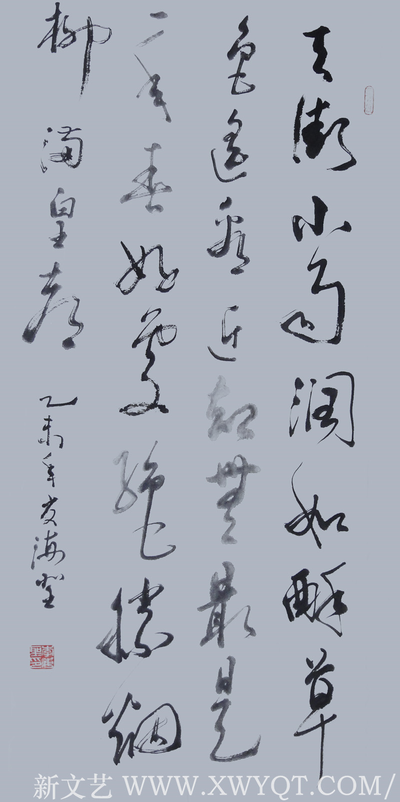 天街小雨润如酥草
色遥看近却無最是
一年春好處絶勝烟
柳满皇都
乙未年友海
新文艺 WWW.XWYQT.COM/